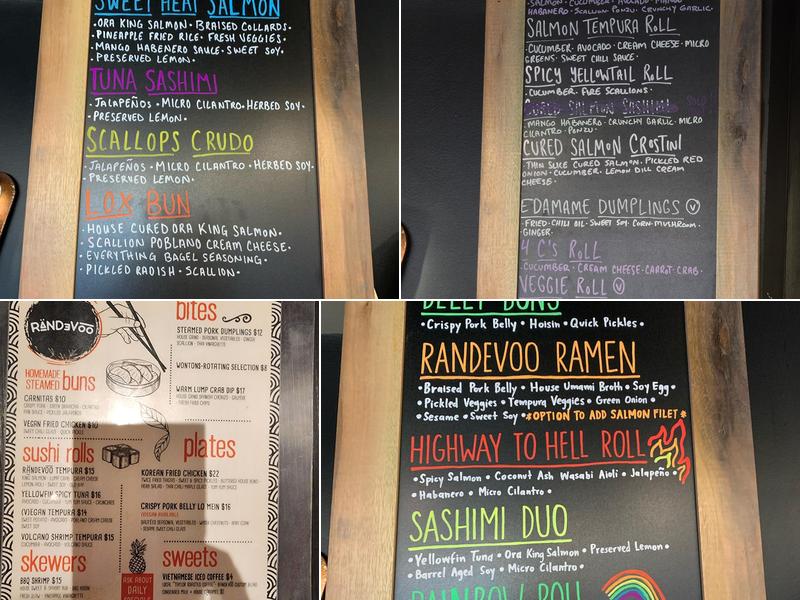 SWEET HEAT SALMON
• ORA KING SALMON • BRAISED COLLARDS •
• PINEAPPLE FRIED RICE • FRESH VEGGIES •
• MANGO HABENERO SAUCE • SWEET SOY •
• PRESERVED LEMON •
TUNA SASHIMI
• JALAPEÑOS • MICRO CILANTRO • HERBED SOY •
• PRESERVED LEMON •
SCALLOPS CRUDO
• JALAPEÑOS • MICRO CILANTRO • HERBED SOY •
• PRESERVED LEMON •
LOX BUN
• HOUSE CURED ORA KING SALMON •
• SCALLION POBLANO CREAM CHEESE •
• EVERYTHING BAGEL SEASONING •
• PICKLED RADISH • SCALLION •
HABANERO • SCALLION PONZU • CRUNCHY GARLIC •
SALMON TEMPURA ROLL
• CUCUMBER • AVOCADO • CREAM CHEESE • MICRO
GREENS • SWEET CHILI SAUCE •
SPICY YELLOWTAIL ROLL
• CUCUMBER • FIRE SCALLIONS •
CURED SALMON SASHIMI
• MANGO HABANERO • CRUNCHY GARLIC • MICRO
CILANTRO • PONZU •
CURED SALMON CROSTINI
• THIN SLICE CURED SALMON • PICKLED RED
ONION • CUCUMBER • LEMON DILL CREAM
CHEESE •
EDAMAME DUMPLINGS V
• FRIED • CHILI OIL • SWEET SOY • CORN • MUSHROOM •
GINGER •
4 C'S ROLL
• CUCUMBER • CREAM CHEESE • CARROT • CRAB •
VEGGIE ROLL V
RÄNDƏVOO
HOMEMADE
STEAMED buns
CARNITAS $10
VEGAN FRIED CHICKEN $10
sushi rolls
RÄNDƏVOO TEMPURA $15
YELLOWFIN SPICY TUNA $16
(V)EGAN TEMPURA $14
VOLCANO SHRIMP TEMPURA $15
skewers
BBQ SHRIMP $15
ASK ABOUT
DAILY
SPECIALS
bites
STEAMED PORK DUMPLINGS $12
WONTONS-ROTATING SELECTION $8
WARM LUMP CRAB DIP $17
plates
KOREAN FRIED CHICKEN $22
CRISPY PORK BELLY LO MEIN $16
sweets
VIETNAMESE ICED COFFEE $4
BELLY BUNS
• Crispy Pork Belly • Hoisin • Quick Pickles •
RANDEVOO RAMEN
• Braised Pork Belly • House Umami Broth • Soy Egg •
• Pickled Veggies • Tempura Veggies • Green Onion •
• Sesame • Sweet Soy • *OPTION TO ADD SALMON FILET*
HIGHWAY TO HELL ROLL
• Spicy Salmon • Coconut Ash Wasabi Aioli • Jalapeño •
• Habanero • Micro Cilantro •
SASHIMI DUO
• Yellowfin Tuna • Ora King Salmon • Preserved Lemon •
• Barrel Aged Soy • Micro Cilantro •
RAINBOW ROLL